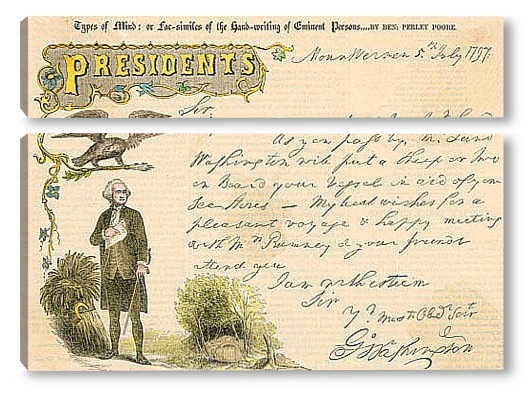 Types of Mind: or Fac-similes of the Hand-writing of Eminent Persons....BY BEN: PERLEY POORE.
PRESIDENTS
Mount Vernon 5th July 1797.
Sir,
As you pass by, Mr. Lund
Washington will put a Sheep or two
on Board your Vessel in aid of your
Sea Stores — My best wishes for a
pleasant voyage & happy meeting
with Mrs Rumney & your friends
attend you
I am with esteem
Sir
Yr Most Obedt Servt
Go Washington